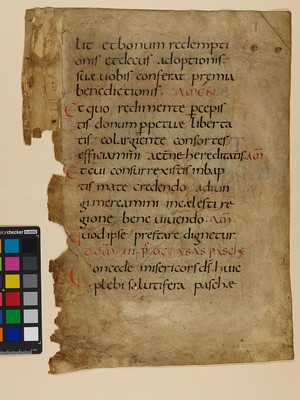 lit et bonum redempti
onis et decus adoptionis
suae uobis conferat premia
benedictionis. AMEN
Et quo redimente pcepis
tis donum ppetuae liberta
tis. eo largiente consortes
efficiamini aetne hereditatis. am̄
Et cui consurrexistis in bap
tis mate credendo adiun
gi mereamini in celesti re
gione bene uiuendo. am̄
Quod ipse prestare dignetur
IN OCTABAS PASCHE
Concede misericors ds. huic
plebi salutifera paschae